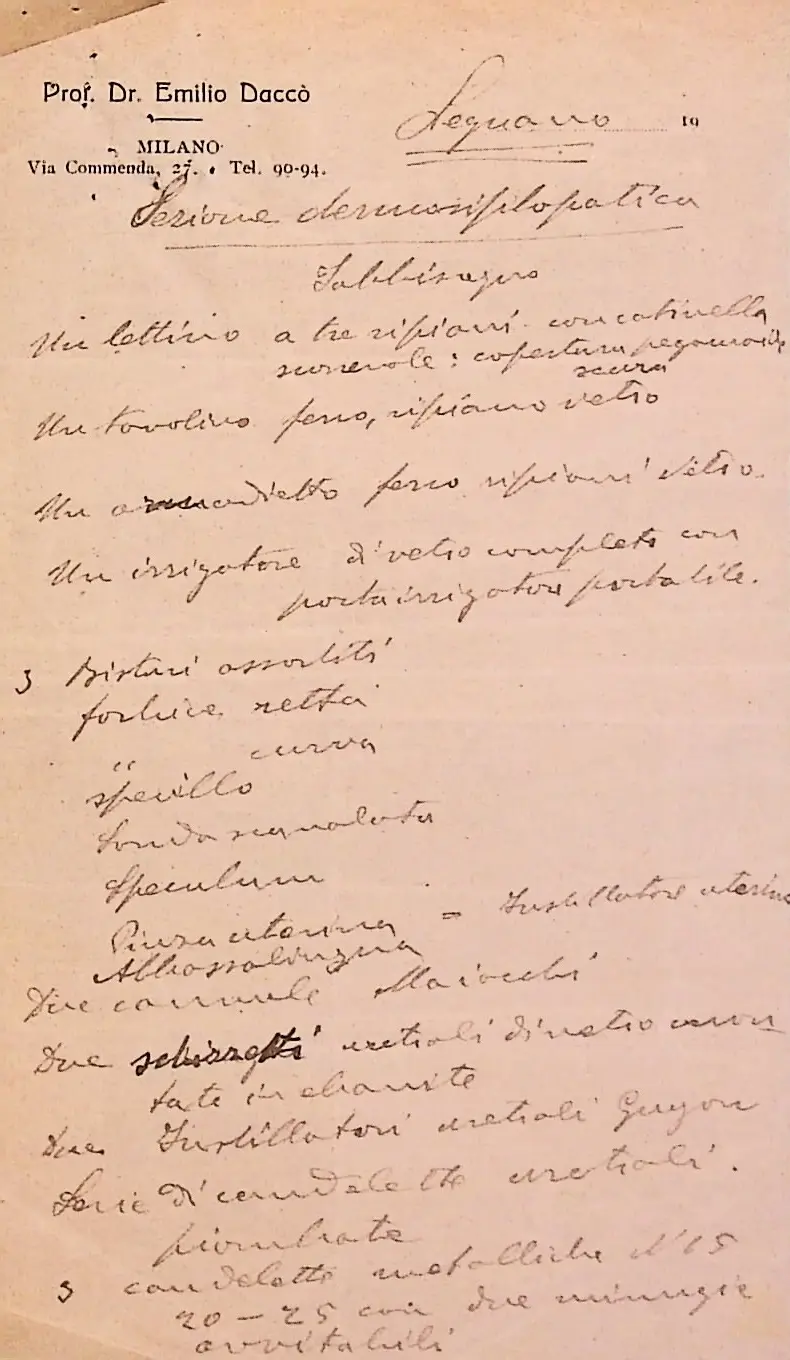 Prof. Dr. Emilio Daccò
MILANO
Via Commenda, 27. • Tel. 90-94.
Legnano 19
Sezione dermosifilopatica
Fabbisogno
Un lettino a tre ripiani con catinella
: copertura pegamoide
scura
Un tavolino ferro, ripiano vetro
Un armadietto ferro ripiani vetro.
Un irrigatore di vetro completo con
portairrigatore portatile.
3 Bisturi assortiti
forbice retta
" curva
specillo
Sonda scanalata
Speculum
Pinza uterina = Instillatore uterino
Abbassalingua
Due cannule Maiocchi
Due schizzetti uretrali di vetro mon
tate in ebanite
Due Instillatori uretrali Guyon
Serie di candelette uretrali.
piombate
3 candelette metalliche N 15
20 - 25 con due minugie
avvitabili